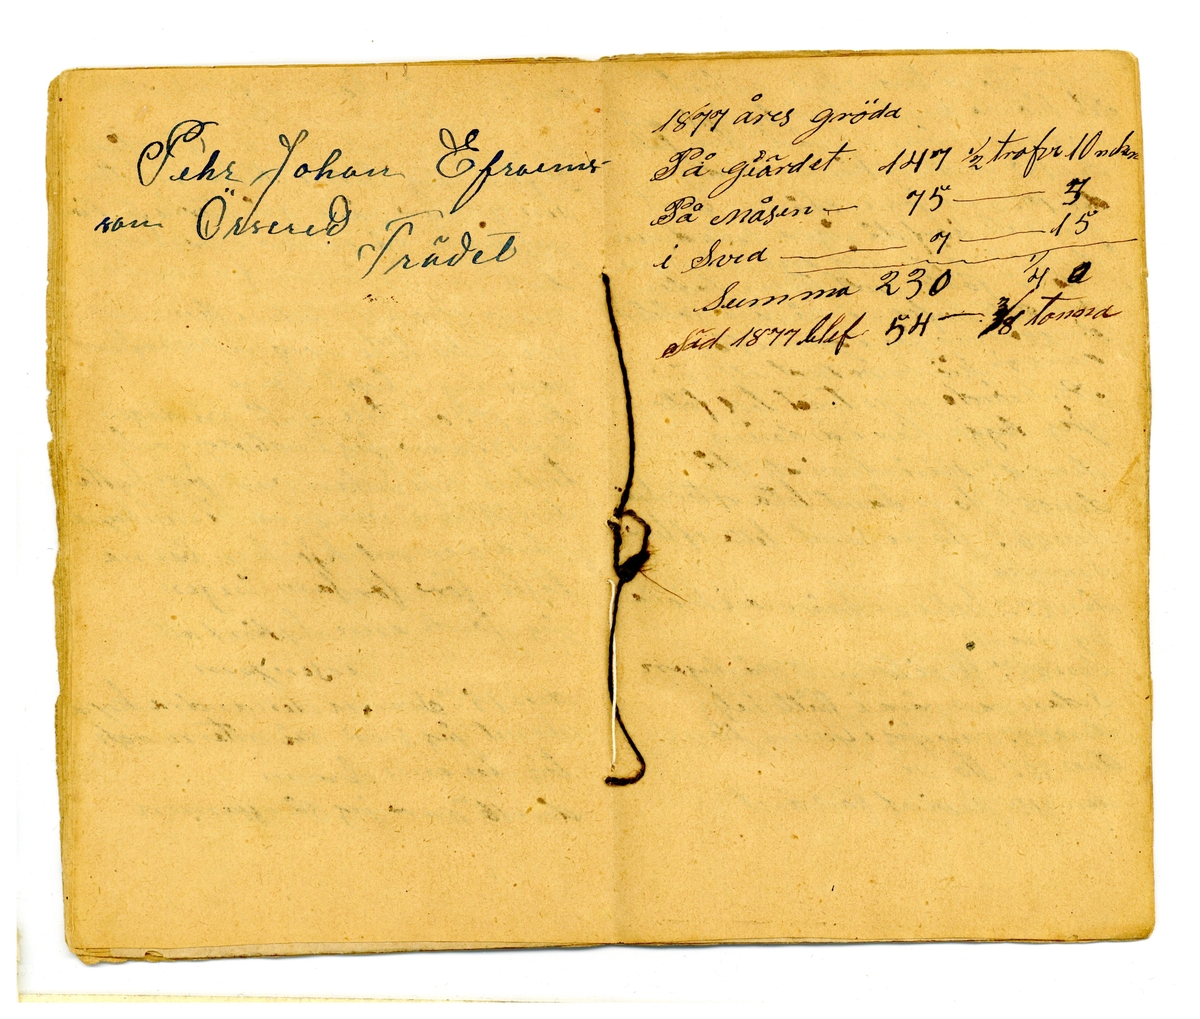 Pehr Johan Efraims-
son Örsered
Trädet
1877 åres gröda
På giärdet 147 1/2 trafvr 10 nekr
På Måsen — 75 — 7
i Sved — 7 — 15
Summa 230
Säd 1877 blef 54 — 3/8 tonna